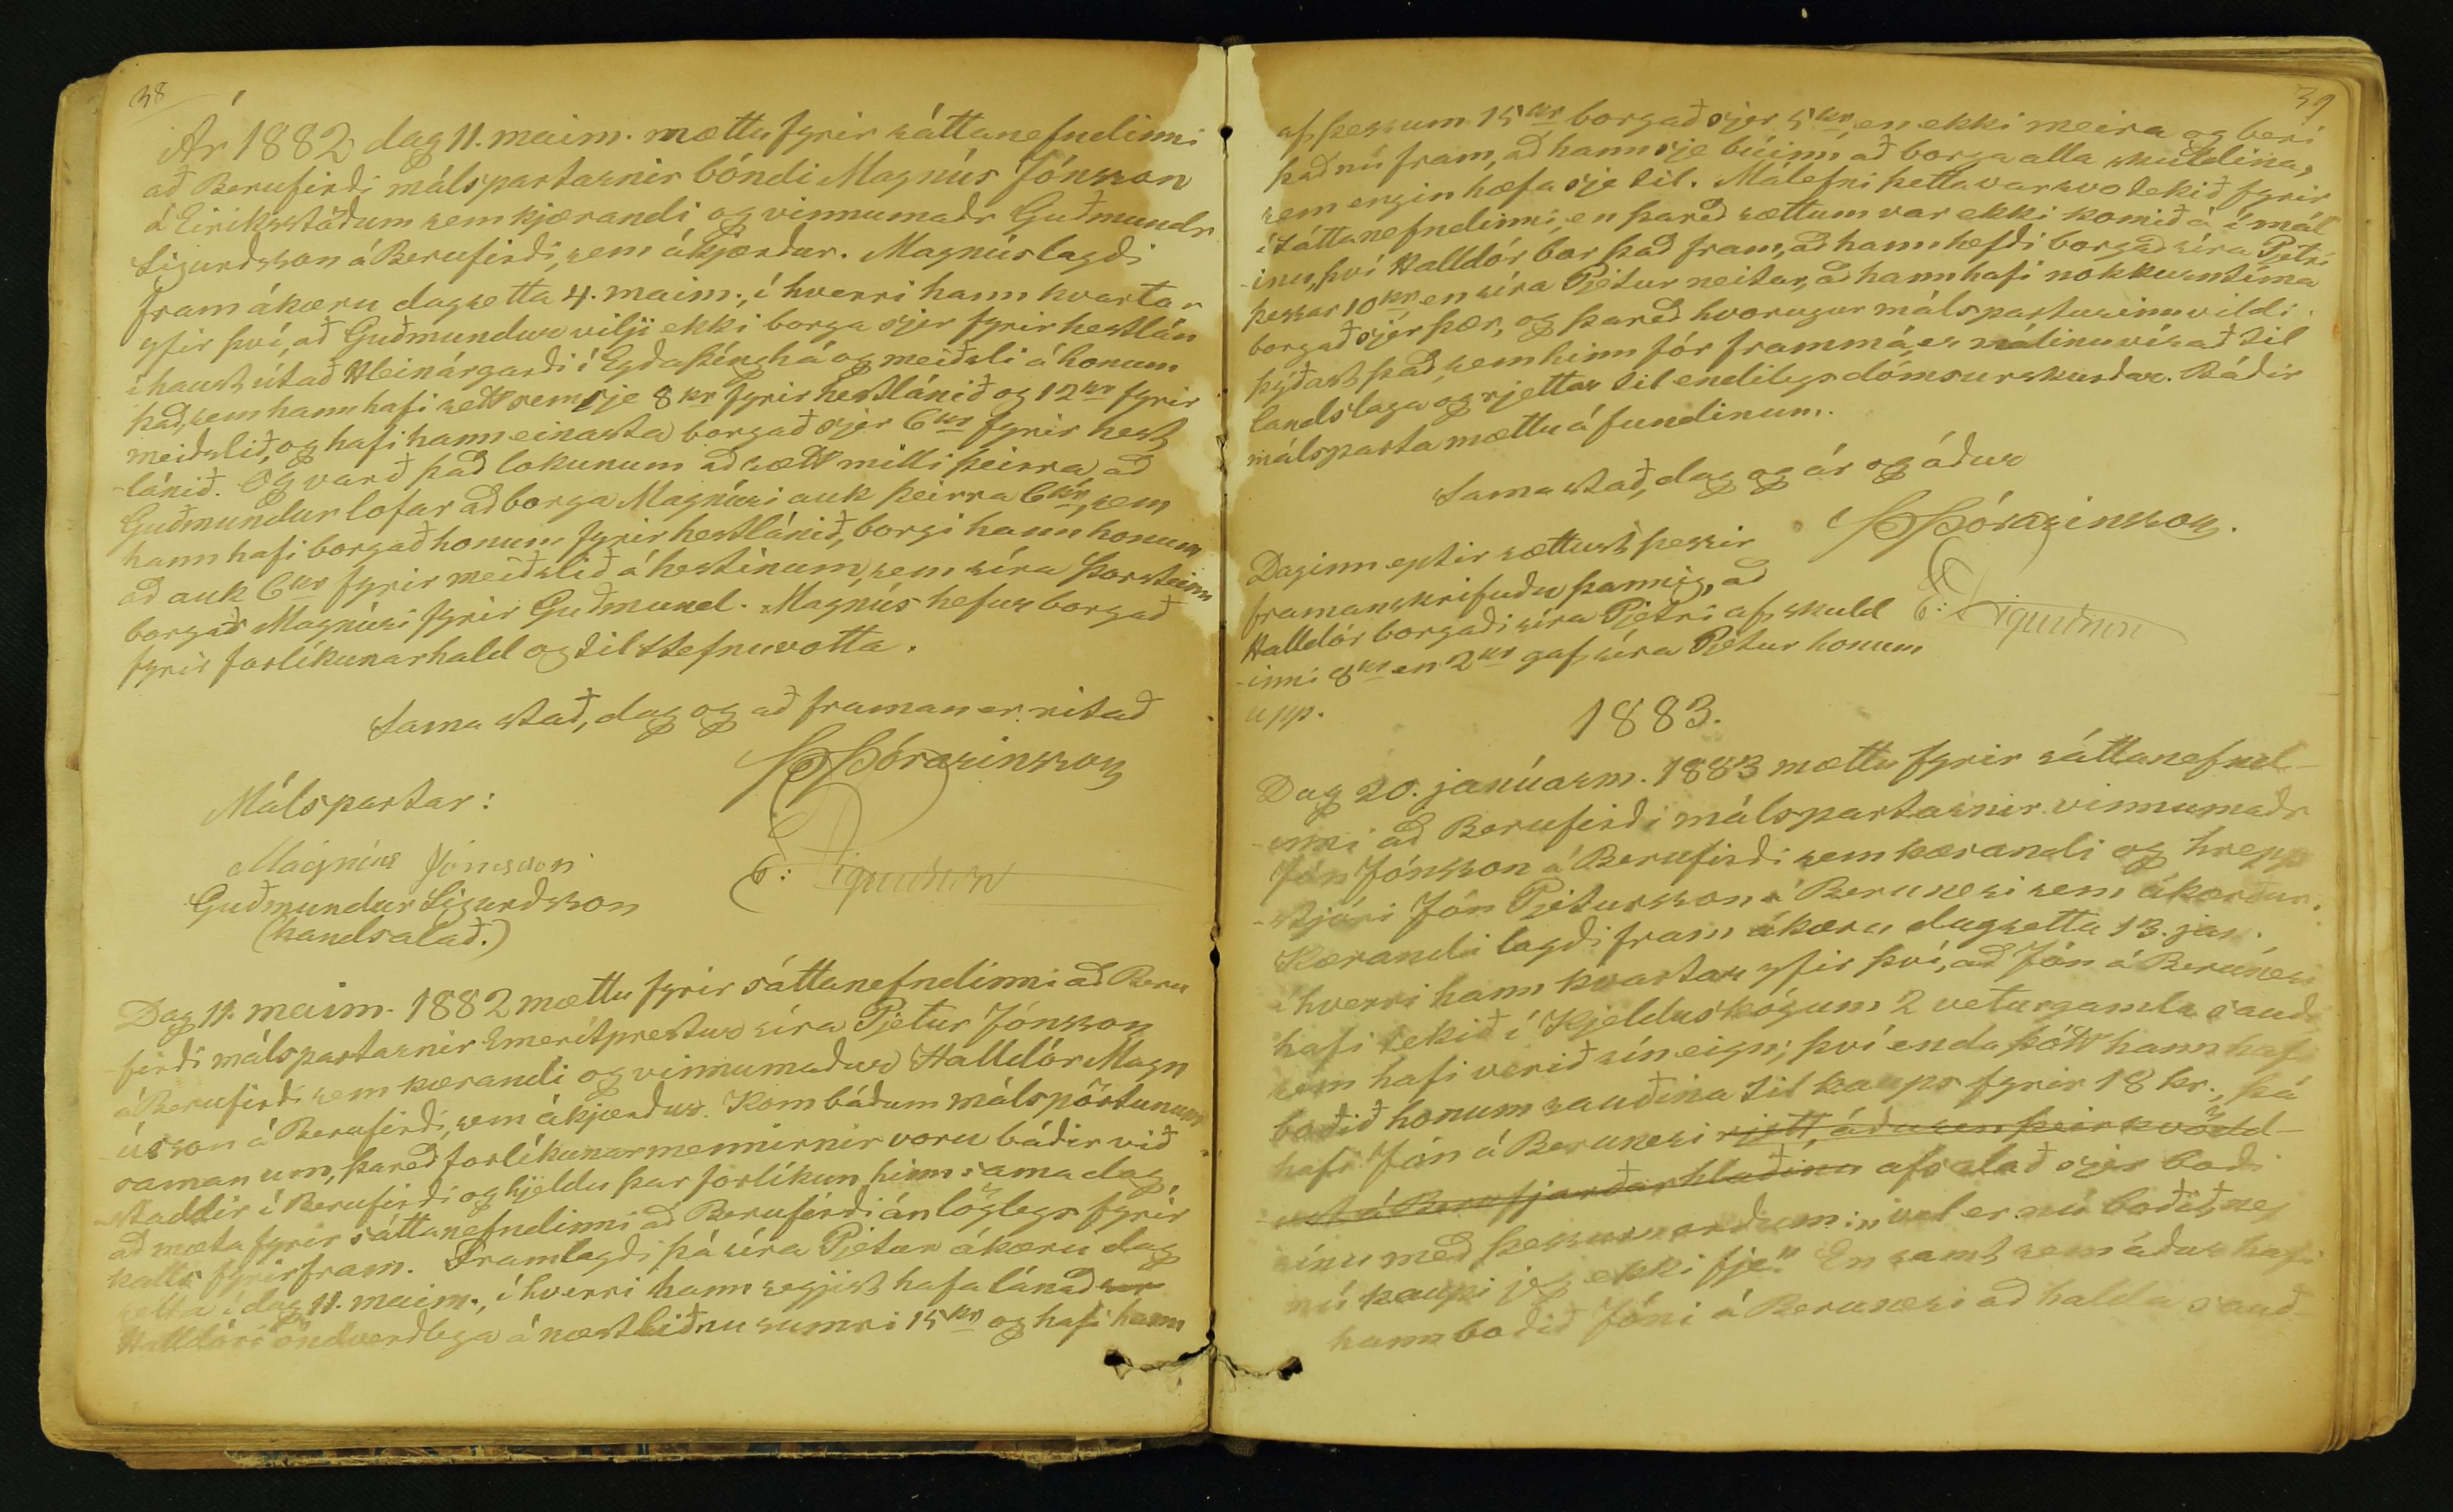 38
Ár 1882 dag 11. maim. mættu fyrir sáttanefndinni
að Berufirði málspartarnir bóndi Magnús Jónsson
á Eiriksstöðum sem kjærandi og vinnumaðr Guðmundr
Sigurðsson á Berufirði, sem ákjærður. Magnús lagði
fram ákæru dagsetta 4. maim., í hverri hann kvartar
yfir því, að Guðmundur vilji ekki borga sjer fyrir hestlán
í haust útað Kleinárgarði í Eyðaþínghá og meiðsli á honum
það, sem hann hafi sett sem sje 8 kr fyrir hestlánið og 12 kr fyrir
meiðslið, og hafi hann einasta borgað sjer 6 kr fyrir hest
-lánið. Og varð það lokunum að sætt milli þeirra, að
Guðmundur lofar að borga Magnúsi auk þeirra 6 kr, sem
hann hafi borgað honum fyrir hestlánið, borgi hann honum
að auk 6 kr fyrir meiðslið á hestinum, sem síra Þorsteinn
borgar Magnúsi fyrir Guðmund. Magnús hefur borgað
fyrir forlíkunarhald og til stefnuvotta.
Sama stað, dag og að framan er ritað
Þ Þórarinsson
Málspartar:
E: Sigurðsson
Magnús Jónsson
Guðmundur Sigurðsson
(handsalað.)
Dag 11. maim. 1882 mættu fyrir sáttanefndinni að Beru
firði málspartarnir Emeritprestur síra Pjetur Jónsson
á Berufirði sem kærandi og vinnumaður Halldór Magn
-ússon á Berufirði, sem ákjærður. Kom báðum málspörtunum
saman um, þareð forlíkunarmennirnir voru báðir við
-staddir í Berufirði og hjeldu þar forlíkun hinn sama dag,
að mæta fyrir sáttanefndinni að Berufirði án löglegs fyrir
kalls fyrirfram. Framlagði þá síra Pjetur ákæru dag
setta í dag 11. maim., í hverri hann segjist hafa lánað
Halldóri öndverðlega á næstliðnu sumri 15 kr og hafi hann
39
af þessum 15 kr borgað sjer 5 kr, en ekki meira og beri
það nú fram, að hann sje búinn að borga alla skuldina,
sem engin hæfa sje til. Málefni þetta var svo tekið fyrir
í sáttanefndinni, en þareð sættum var ekki komið á í mál
-inu, því Halldór bar það fram, að hann hefði borgað síra Pjetri
þessar 10 kr, en síra Pjetur neitar, að hann hafi nokkurntíma
borgað sjer þær, og þareð hvorugur málsparturinn vildi
þýðast það, sem hinn fór framm á, er málinu vísað til
landslaga og rjettar til endilegs dómsurskurðar. Báðir
málsparta mættu á fundinum.
Sama stað, dag og ár og áður
Þ Þórarinsson.
Daginn eptir sættust þessir
framanskrifuðu þannig, að
Halldór borgaði síra Pjetri af skuld
E: Sigurðsson
-inni 8 kr en 2 kr gaf síra Pjetur honum
upp.
1883.
Dag 20. janúarm. 1883 mættu fyrir sáttanefnd-
-inni að Berufirði málspartarnir vinnumaðr
Jón Jónsson á Berufirði sem kærandi og hrepp
-stjóri Jón Pjetursson á Berunesi sem ákærður.
Kærandi lagði fram ákæru dagsetta 13. jan.
í hverri hann kvartar yfir því, að Jón á Berunesi
hafi tekið í Kjelduskógum 2 veturgamla sauði
sem hafi verið sín eign; því enda þótt hann hafi
boðið honum sauðina til kaups fyrir 18 kr., þá
hafi Jón á Berunesi rjett, áður en þeir kvödd-
-ust á Berufjarðarhlaðinu afsalað sjer boði
sínu með þessum orðum: „vel er nú boðið, nej
nú kaupi jeg ekki fje." En samt sem áður hafi
hann boðið Jóni á Berunesi að halda sauð